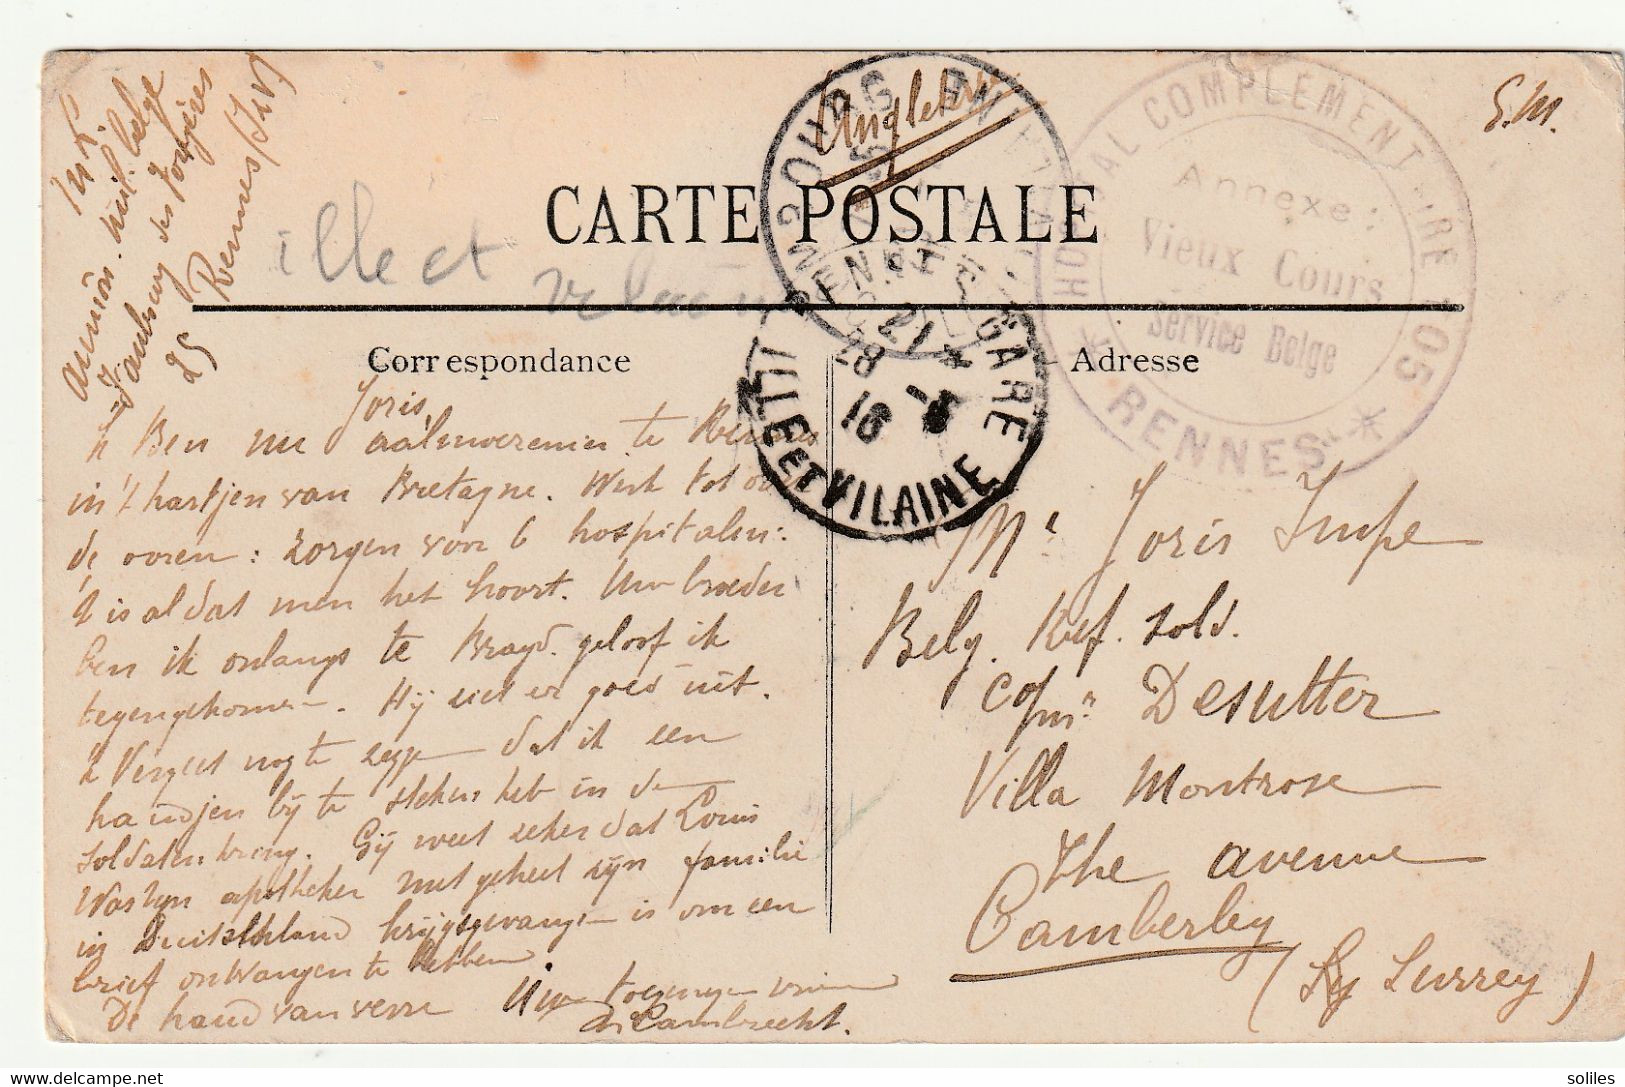 Angleterre
S.M.
CARTE POSTALE
Ille et
HOPITAL COMPLEMENTAIRE 105
Annexe :
Vieux Cours
Service Belge
* RENNES *
Correspondance
Adresse
RENNES GARE
21 28
-5 16
ILLE ET VILAINE
mil. belge
Faubourg des Fougères
25
Rennes
Joris,
'k Ben nu te Rennes
in 't hartjen van Bretagne. Werk tot over
de ooren : zorgen voor 6 hospitalen :
't is al dat men het hoort. Uw broeder
ben ik onlangs te geloof ik
tegengekomen. Hij ziet er goed uit.
'k Vergeet nog te zeggen dat ik een
handjen bij te steken heb in de
soldaten kring. Gij weet zeker dat Louis
apotheker met geheel zijn familie
in Duitschland krijgsgevangen is om een
brief ontvangen te hebben.
De hand van verre Uw toegenegen vriend
Cambrecht.
Mr Joris Impe
Belg. Ref. sold.
Desutter
Villa Montrose
The avenue
Camberley
( Surrey )
soliles